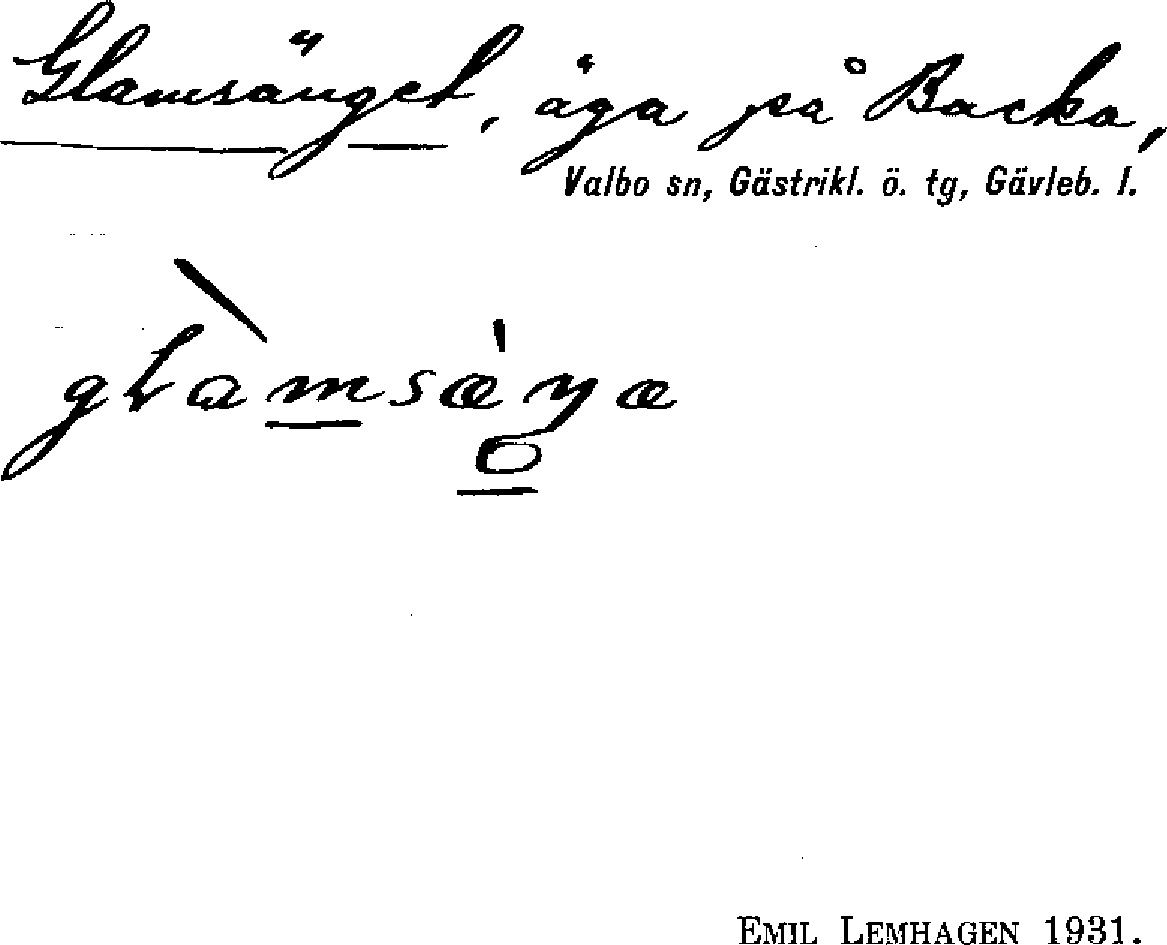 Glamsänget, äga på Backa,
Valbo sn, Gästrikl. ö. tg, Gävleb. l.
glàmsæ̀ŋæ
EMIL LEMHAGEN 1931.